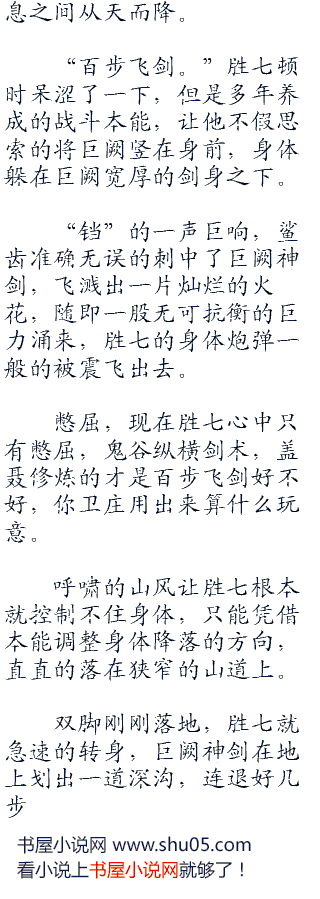 息之间从天而降。
“百步飞剑。”胜七顿
时呆涩了一下，但是多年养
成的战斗本能，让他不假思
索的将巨阙竖在身前，身体
躲在巨阙宽厚的剑身之下。
“铛”的一声巨响，鲨
齿准确无误的刺中了巨阙神
剑，飞溅出一片灿烂的火
花，随即一股无可抗衡的巨
力涌来，胜七的身体炮弹一
般的被震飞出去。
憋屈，现在胜七心中只
有憋屈，鬼谷纵横剑术，盖
聂修炼的才是百步飞剑好不
好，你卫庄用出来算什么玩
意。
呼啸的山风让胜七根本
就控制不住身体，只能凭借
本能调整身体降落的方向，
直直的落在狭窄的山道上。
双脚刚刚落地，胜七就
急速的转身，巨阙神剑在地
上划出一道深沟，连退好几
步
书屋小说网 www.shu05.com
看小说上书屋小说网就够了！